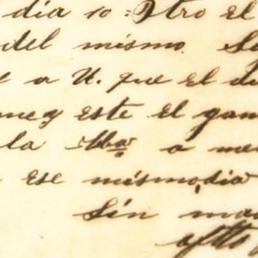 dia 10: Otro el
del mismo. Se
a U. que el d
este el gan
la Mba a me
ese mismo dia
Sin ma
aftto